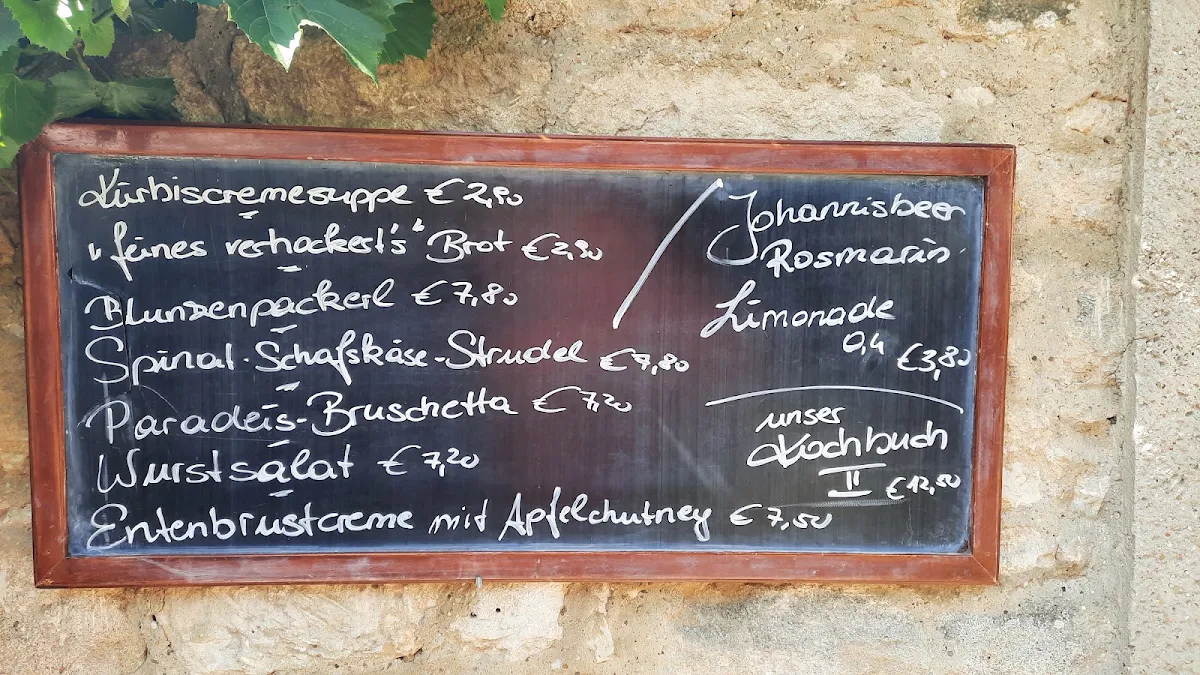 Kürbiscremesuppe € 2,90
"feines verhackert's" Brot € 2,90
Blunzenpackerl € 7,80
Spinat-Schafskäse-Strudel € 7,80
Paradeis-Bruschetta € 7,20
Wurstsalat € 7,20
Entenbrustcreme mit Apfelchutney € 7,50
Johannisbeer
Rosmarin
Limonade
0,4
€ 3,80
unser
Kochbuch
II
€ 12,50